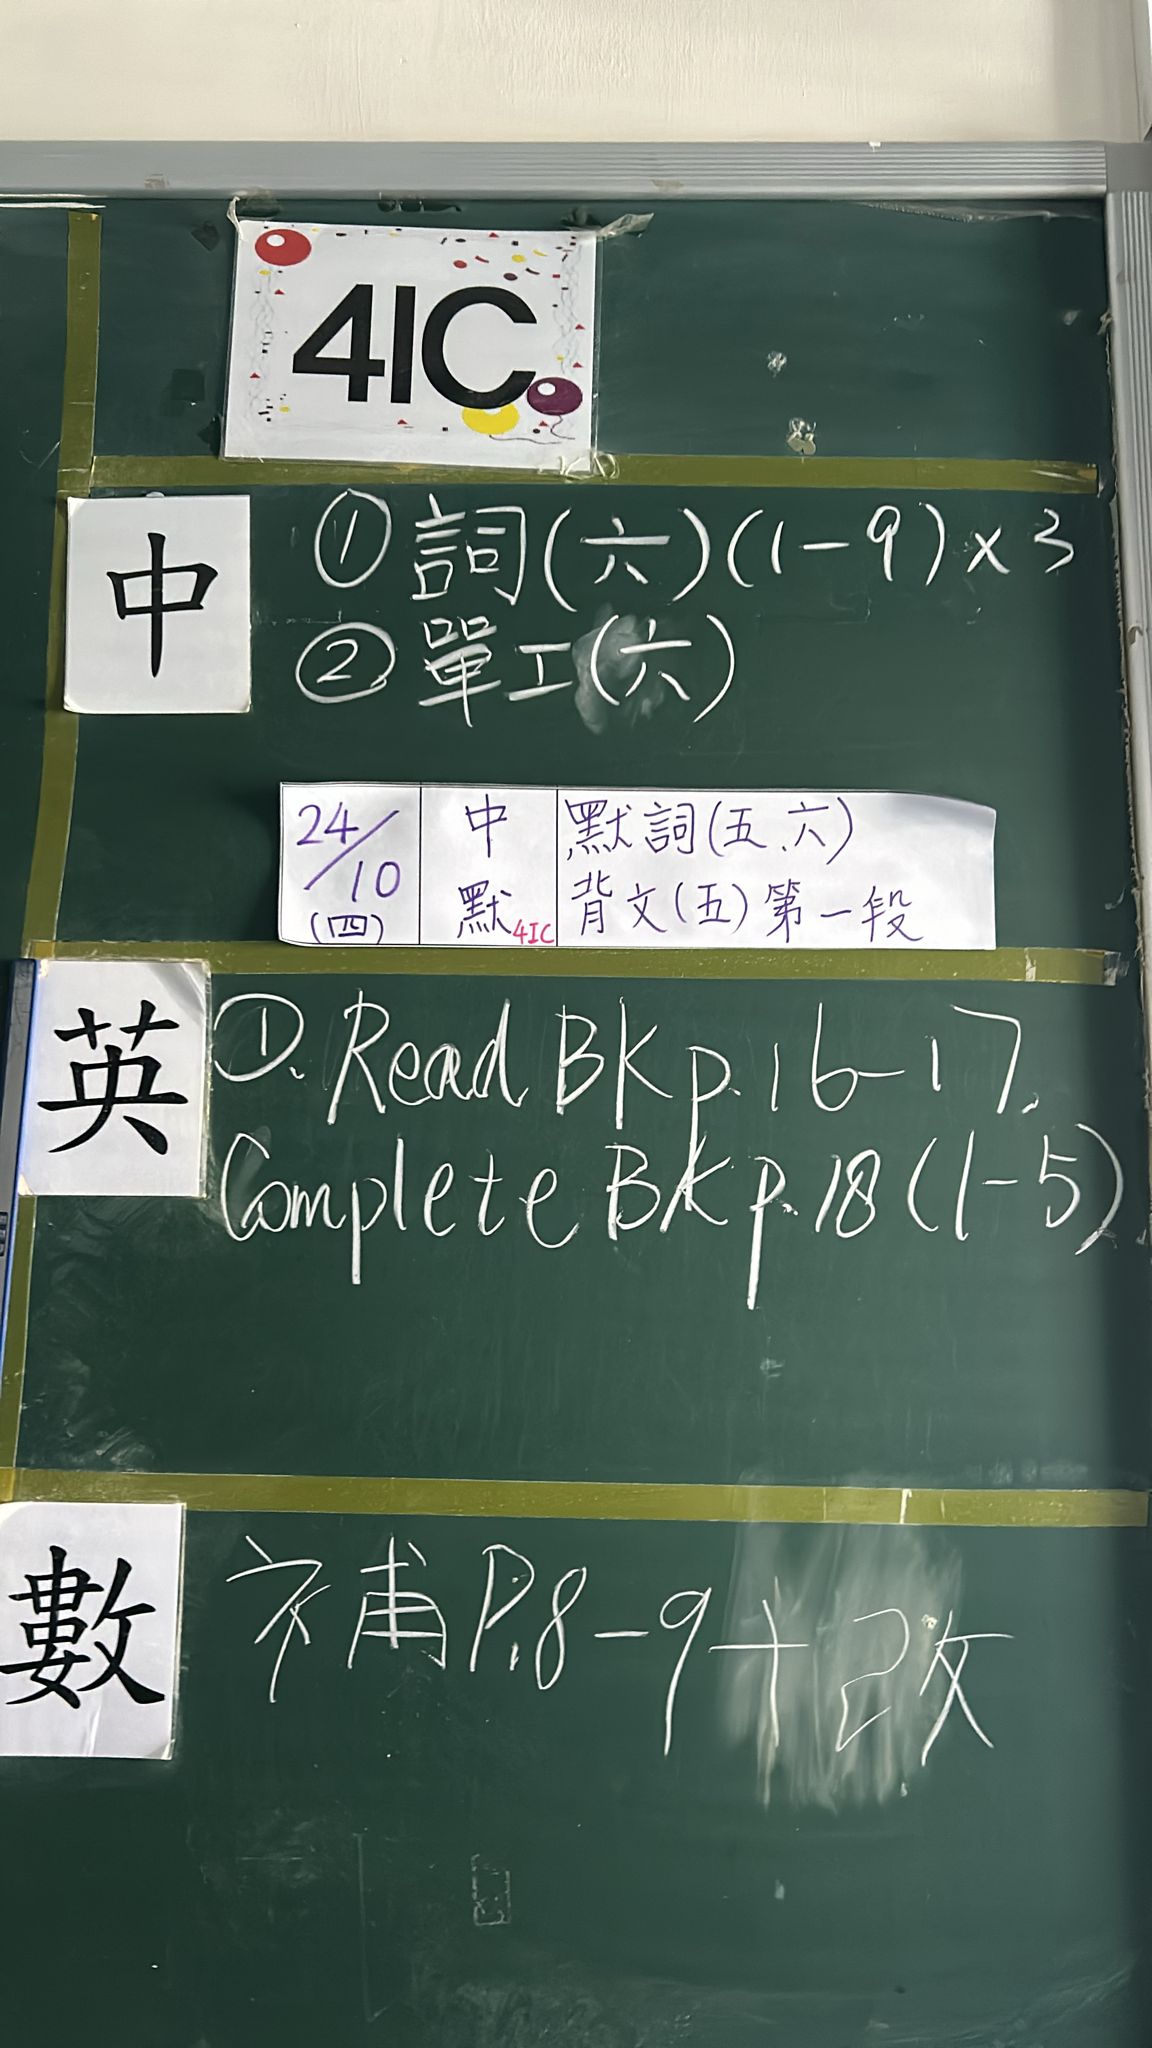 4IC
中
① 詞(六)(1-9)x3
② 單工(六)
24/10
(四)
中
默
4IC
默詞(五、六)
背文(五)第一段
英
①. Read BK p.16-17.
Complete BK p.18(1-5)
數
補P.8-9+2改